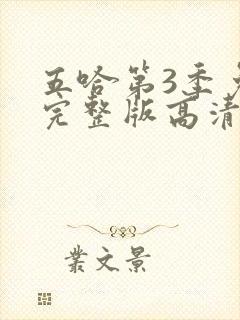 五哈第3季
完整版高清
業文景